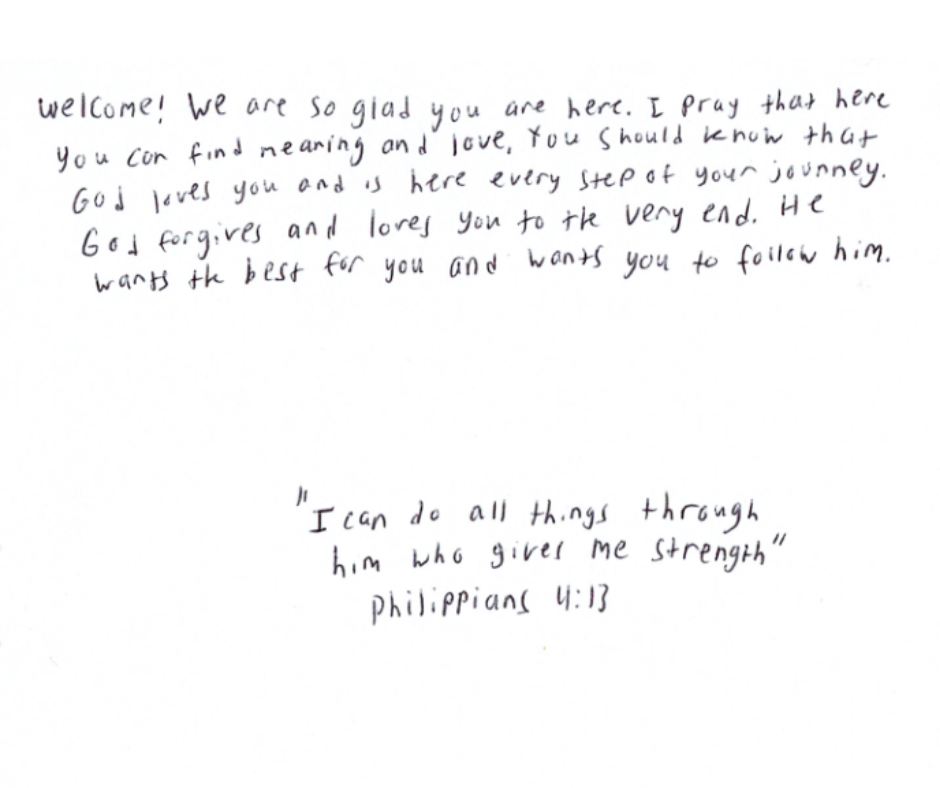 Welcome! We are so glad you are here. I pray that here
you can find meaning and love, You should know that
God loves you and is here every step of your journey.
God forgives and loves you to the very end. He
wants the best for you and wants you to follow him.
"I can do all things through
him who gives me strength"
Philippians 4:13